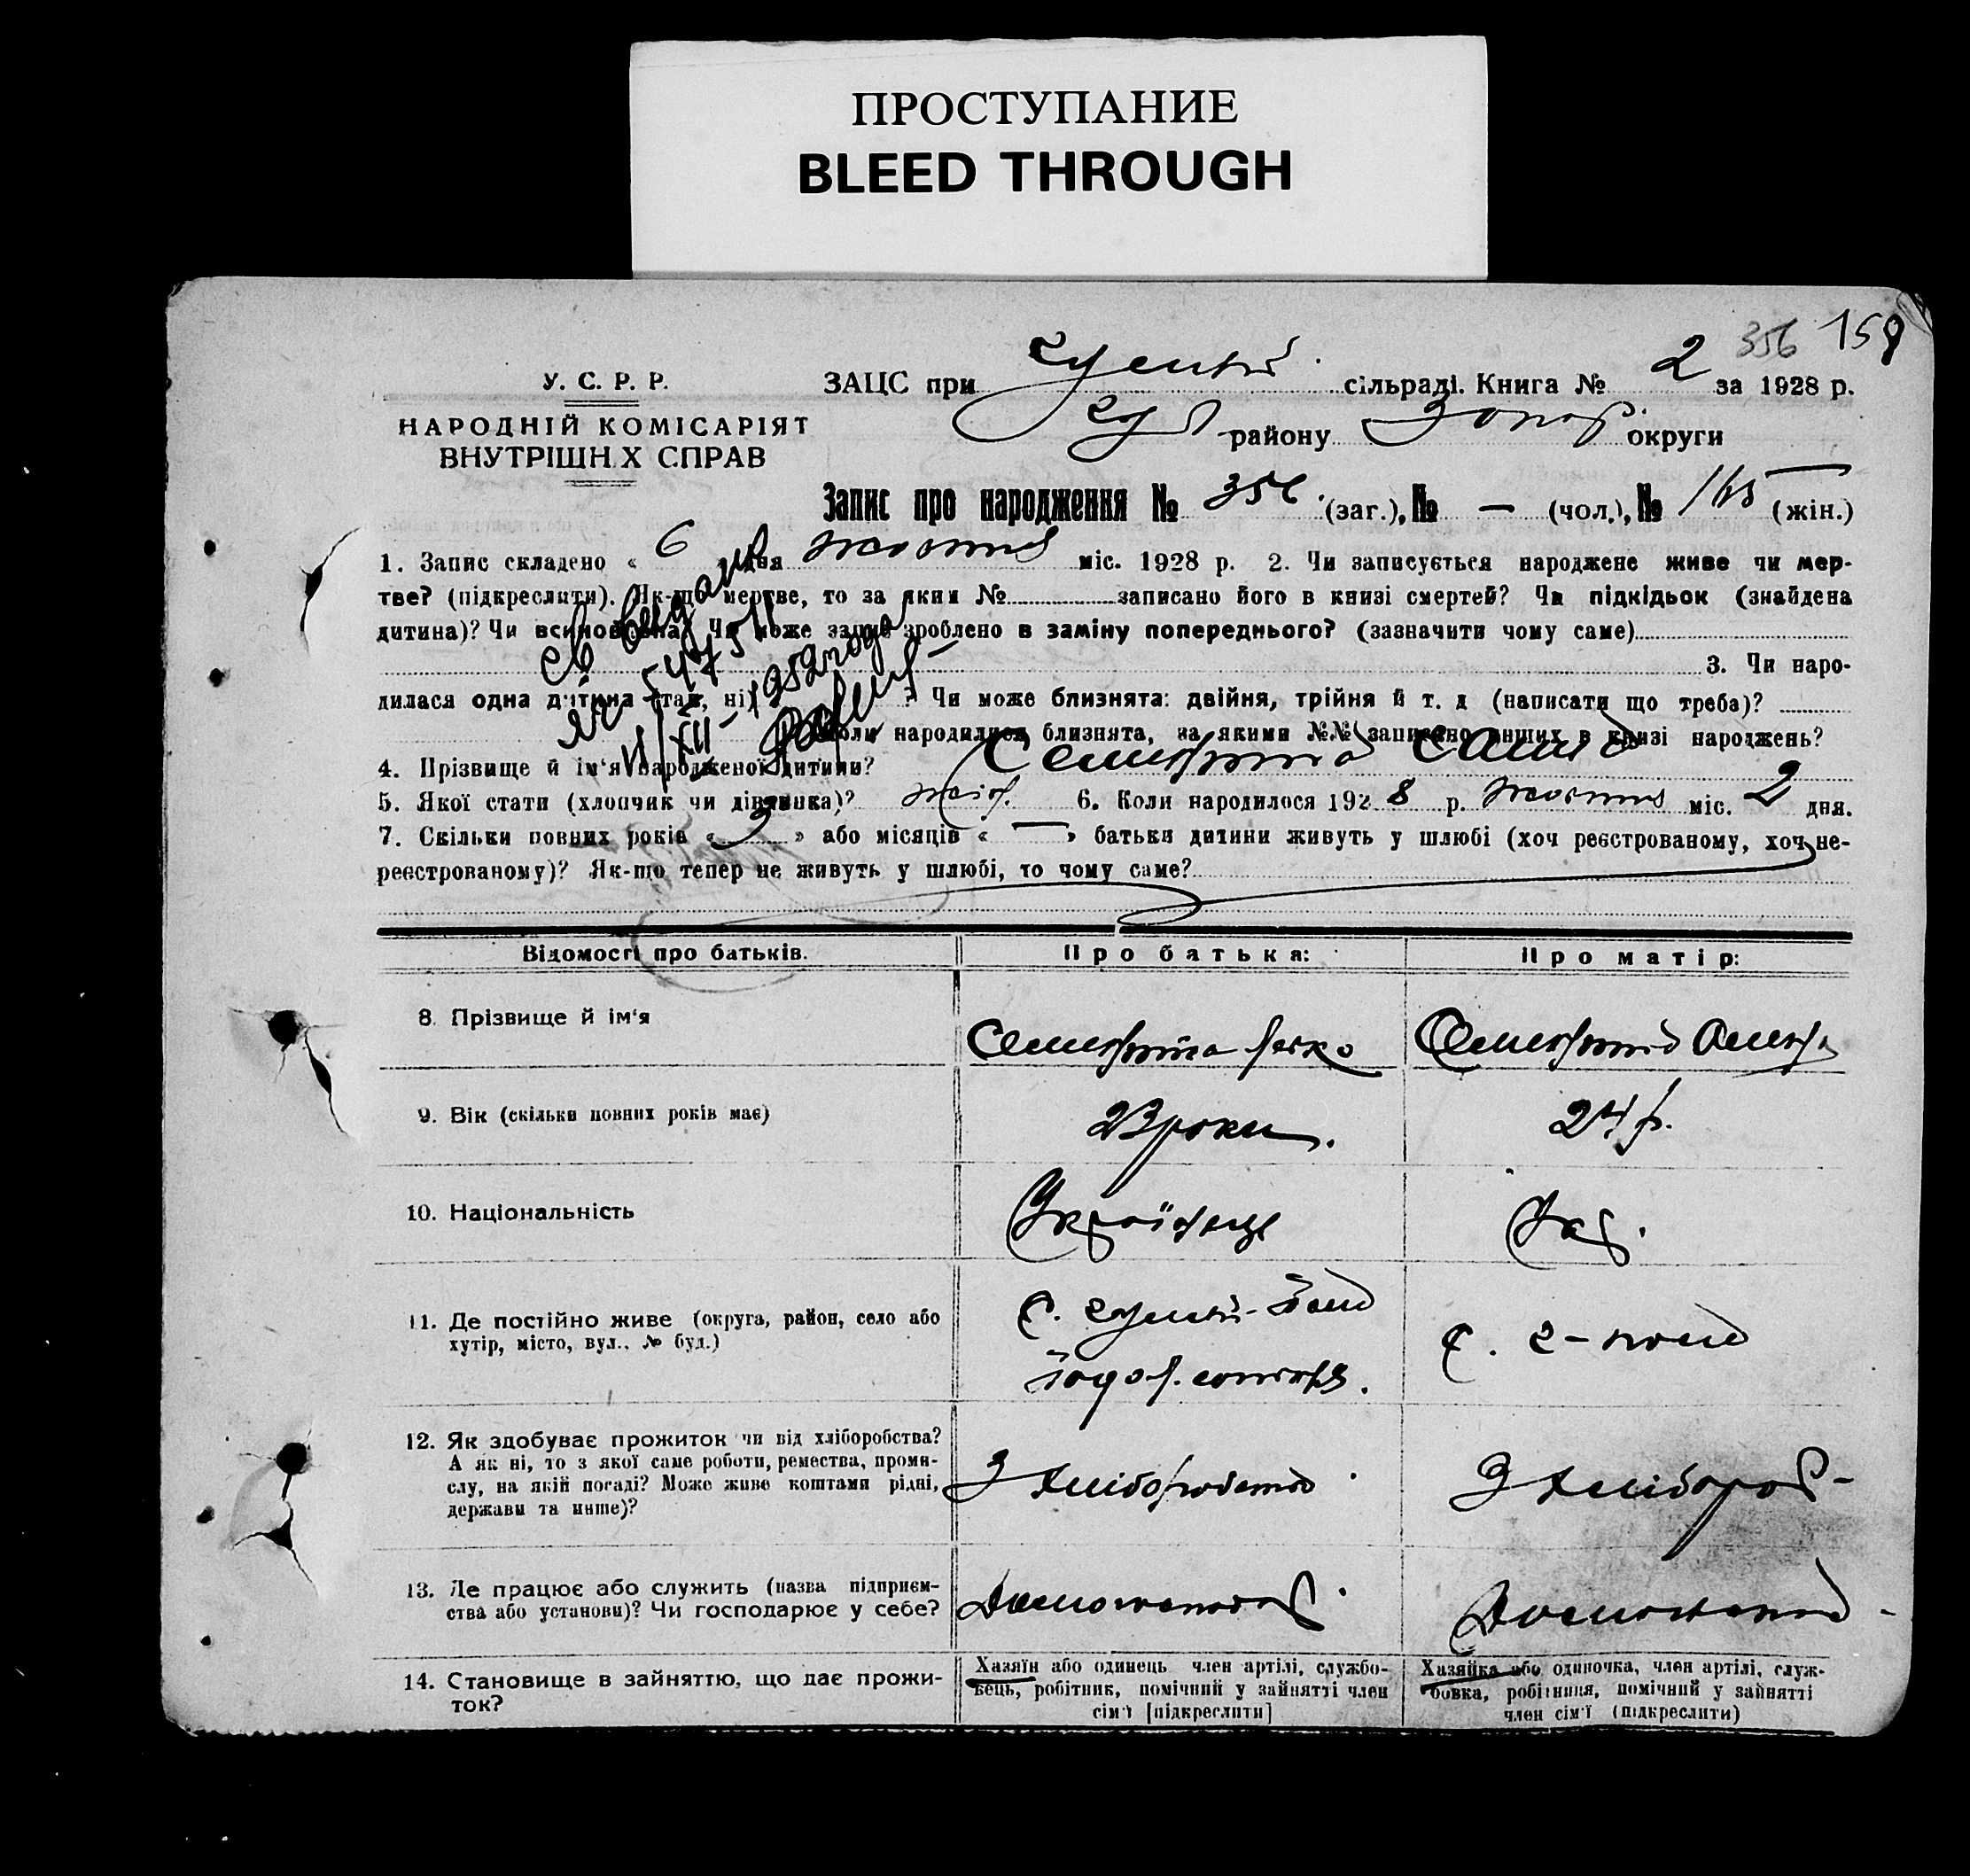 ПРОСТУПАНИЕ
BLEED THROUGH
356 159
У. С. Р. Р.
НАРОДНІЙ КОМІСАРІЯТ
ВНУТРІШНІХ СПРАВ
ЗАЦС при сільраді. Книга № 2 за 1928 р.
району Запор. округи
Запис про народження № 356 (заг.), № — (чол.), № 165 (жін.)
1. Запис складено « 6 дня жовтня міс. 1928 р. 2. Чи записується народжене живе чи мер-
тве? (підкреслити). Як-що мертве, то за яким № записано його в книзі смертей? Чи підкідьок (знайдена
дитина)? Чи всиновлена? Чи може запис зроблено в заміну попереднього? (зазначити чому саме)
3. Чи наро-
дилася одна дитина (так, ні) ? Чи може близнята: двійня, трійня й т. д (написати що треба)?
Коли народилися близнята, за якими №№ записано инших в книзі народжень?
4. Прізвище й ім'я народженої дитини?
5. Якої стати (хлопчик чи дівчинка)? жін. 6. Коли народилося 1928 р. жовтня міс. 2 дня.
7. Скільки повних років « 3 » або місяців « — » батьки дитини живуть у шлюбі (хоч реєстрованому, хоч не-
реєстрованому)? Як-що тепер не живуть у шлюбі, то чому саме?
1952 года
Відомості про батьків. Про батька: Про матір:
8. Прізвище й ім'я
9. Вік (скільки повних років має) 23 роки. 24 р.
10. Національність Українець Укр.
11. Де постійно живе (округа, район, село або
хутір, місто, вул., № буд.)
12. Як здобуває прожиток чи від хліборобства?
А як ні, то з якої саме роботи, ремества, проми-
слу, на якій посаді? Може живе коштами рідні,
держави та инше)?
З хліборобства З хлібороб-
13. Де працює або служить (назва підприєм-
ства або установи)? Чи господарює у себе?
14. Становище в зайняттю, що дає прожи-
ток?
Хазяїн або одинець член артілі, службо-
вець, робітник, помічний у зайнятті член
сім'ї [підкреслити]
Хазяйка або одиночка, член артілі, служ-
бовка, робітниця, помічний у зайнятті
член сім'ї (підкреслити)